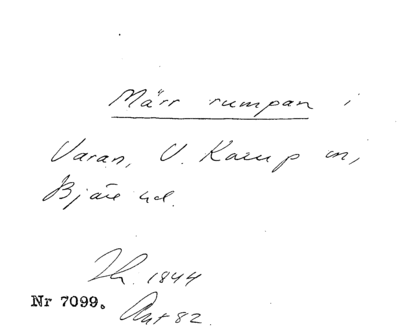 Märrrumpan i
Varan, V. Karup sn,
Bjäre hd.
Jh. 1844
Nr 7099. Ant 82.